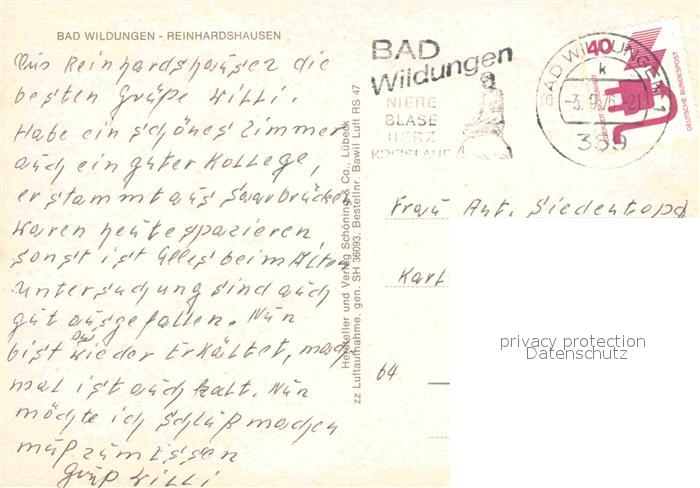 BAD WILDUNGEN - REINHARDSHAUSEN
Aus Reinhardshausen die
besten Grüße Willi.
Habe ein schönes Zimmer
auch ein guter Kollege,
er stammt aus Saarbrücken
waren heute spazieren,
sonst ist alles beim Alten
Untersuchung sind auch
gut ausgefallen. Nun
bist Du wieder Erkältet,
mal ist auch kalt. Nun
möchte ich schluß machen
muß zum Essen
Gruß Willi
Hersteller und Verlag Schöning & Co., Lübeck
zz Luftaufnahme. gen. SH 36093. Bestellnr. Bawil Luft RS 47
BAD
Wildungen
NIERE
BLASE
HERZ
KREISLAUF
BAD WILDUNGEN 1
k
359
40
DEUTSCHE BUNDESPOST
Frau Ant. Siedentopp
Karl
64
privacy protection
Datenschutz